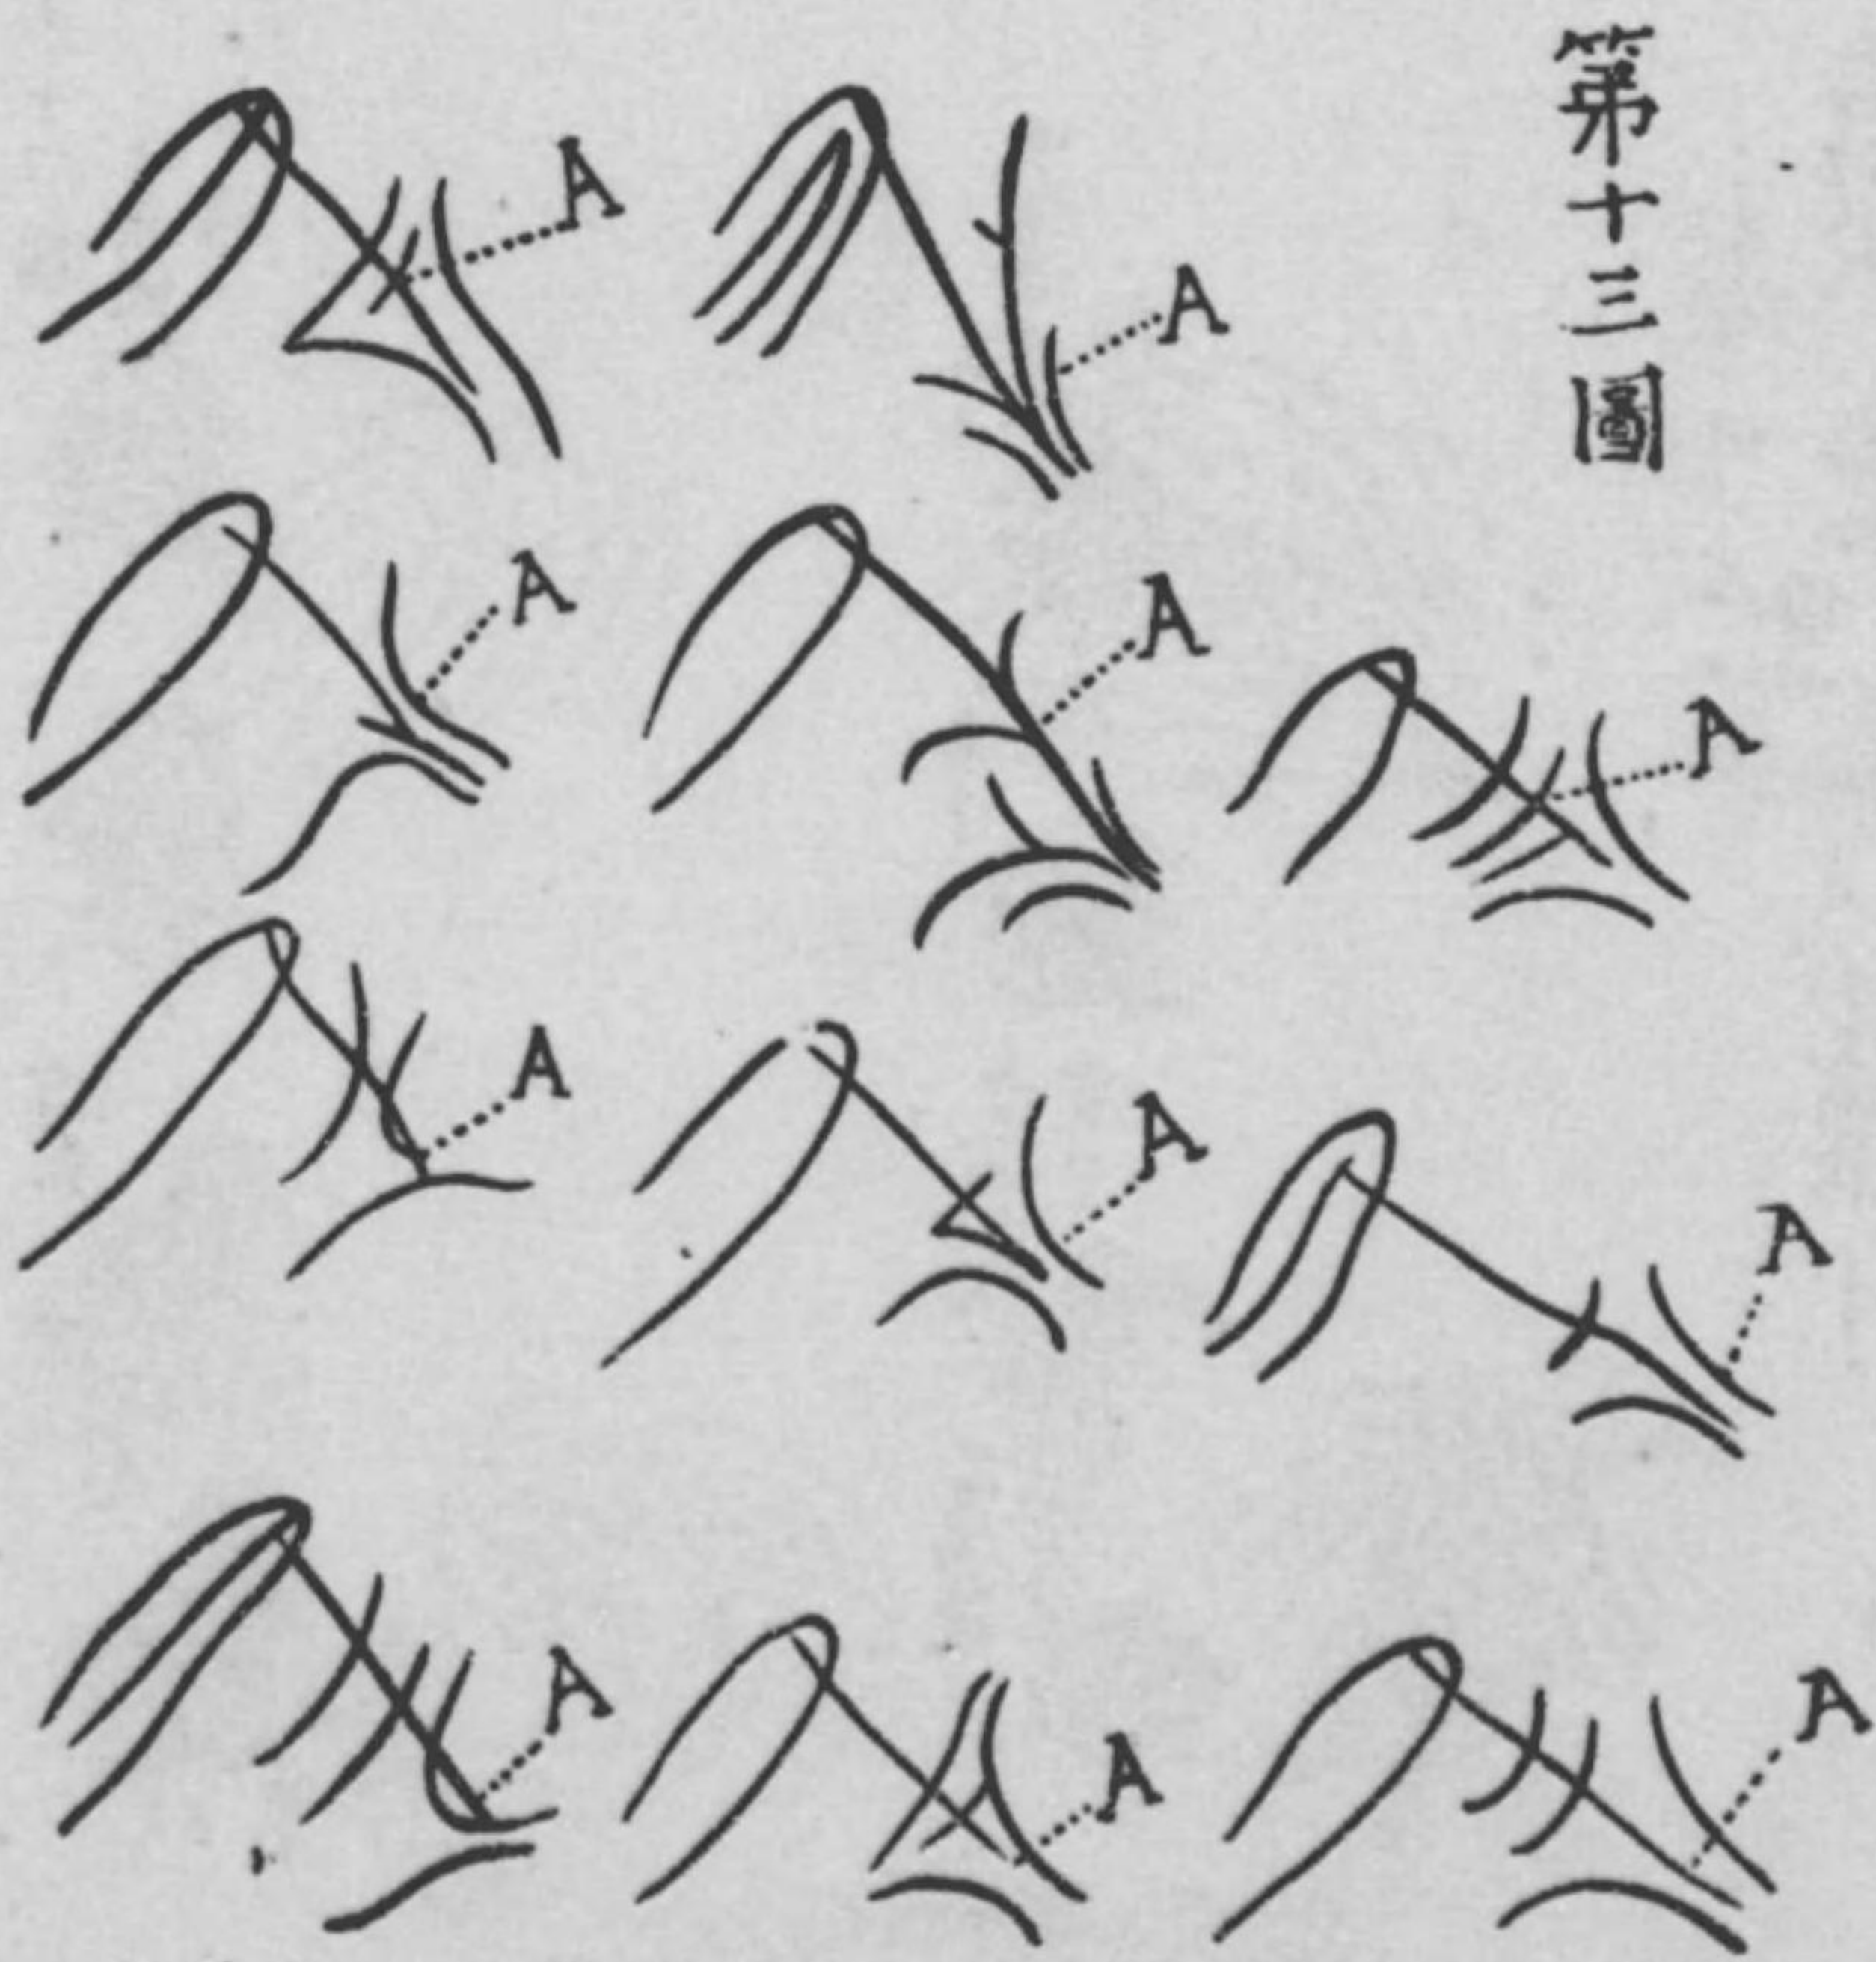 第十三圖
A
A
A
A
A
A
A
A
A
A
A